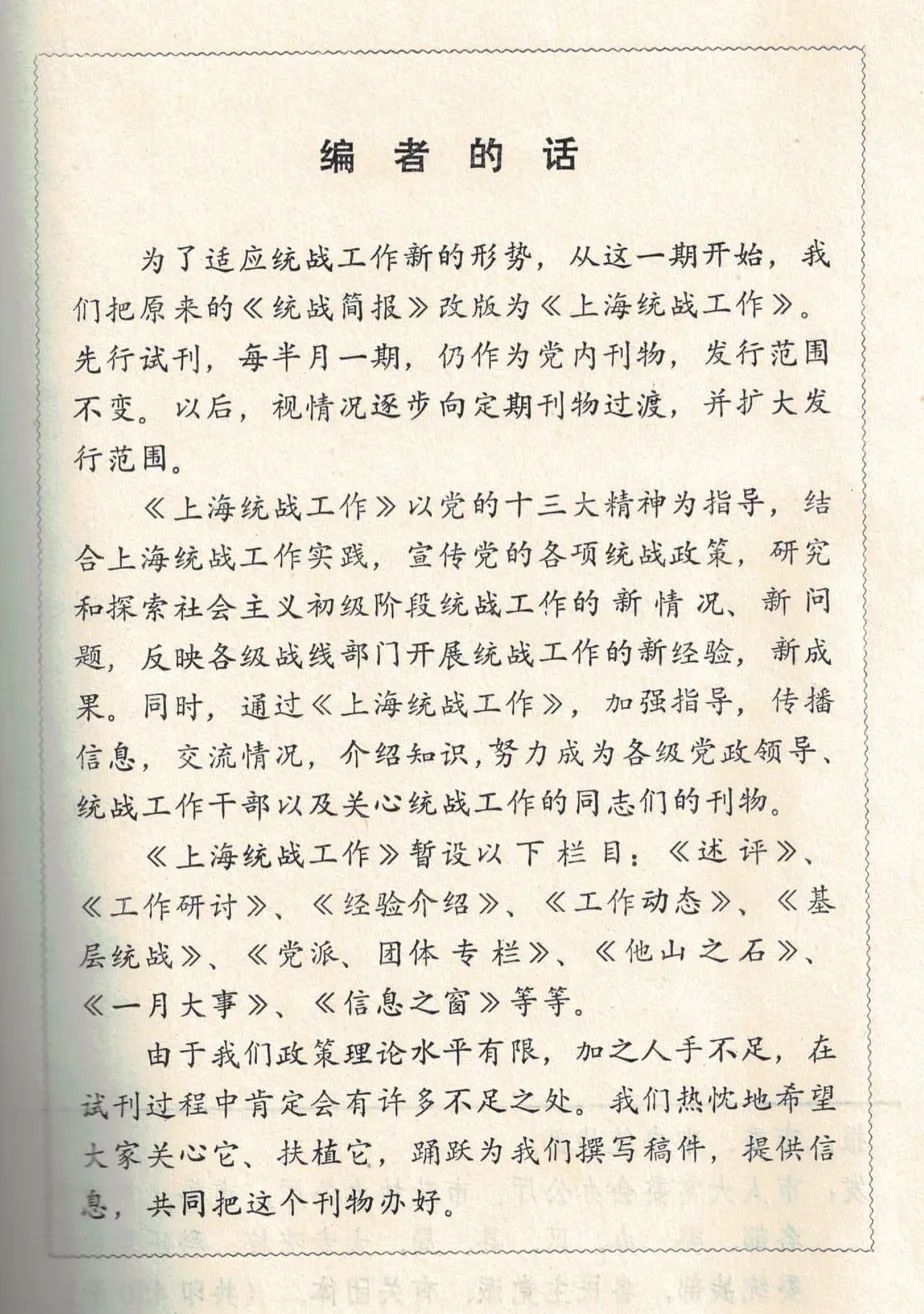 编者的话
为了适应统战工作新的形势，从这一期开始，我
们把原来的《统战简报》改版为《上海统战工作》。
先行试刊，每半月一期，仍作为党内刊物，发行范围
不变。以后，视情况逐步向定期刊物过渡，并扩大发
行范围。
《上海统战工作》以党的十三大精神为指导，结
合上海统战工作实践，宣传党的各项统战政策，研究
和探索社会主义初级阶段统战工作的新情况、新问
题，反映各级战线部门开展统战工作的新经验，新成
果。同时，通过《上海统战工作》，加强指导，传播
信息，交流情况，介绍知识，努力成为各级党政领导、
统战工作干部以及关心统战工作的同志们的刊物。
《上海统战工作》暂设以下栏目：《述评》、
《工作研讨》、《经验介绍》、《工作动态》、《基
层统战》、《党派、团体专栏》、《他山之石》、
《一月大事》、《信息之窗》等等。
由于我们政策理论水平有限，加之人手不足，在
试刊过程中肯定会有许多不足之处。我们热忱地希望
大家关心它、扶植它，踊跃为我们撰写稿件，提供信
息，共同把这个刊物办好。